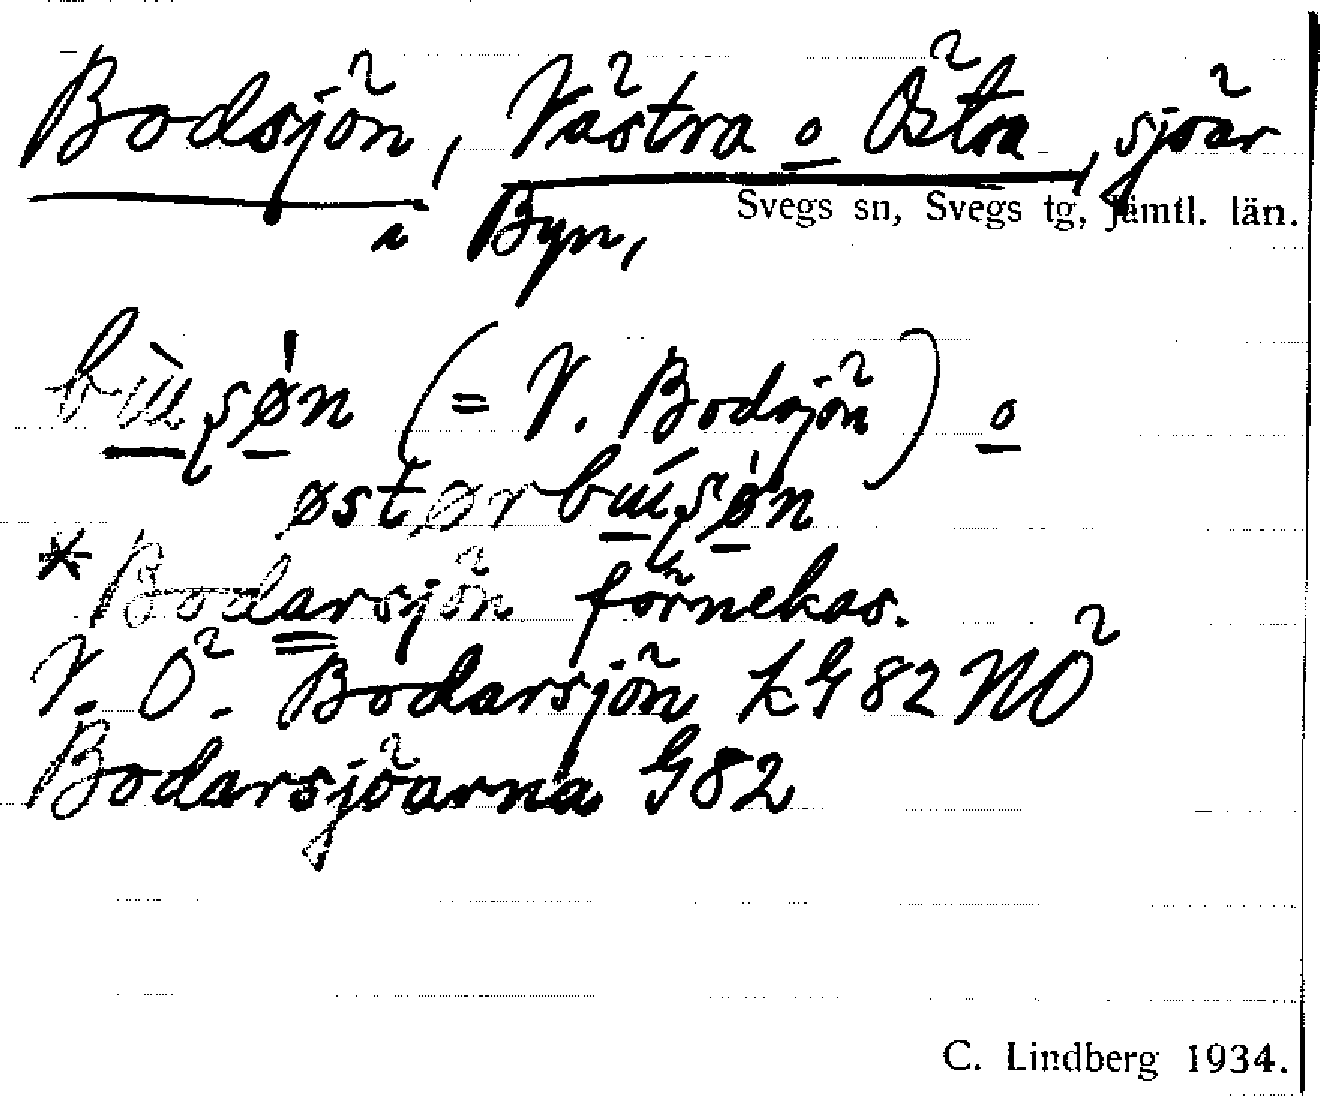 Bodsjön, Västra o Östra, sjöar
Svegs sn, Svegs tg, Jämtl. län.
i Byn,
bɯ̀ʂøn (= V. Bodsjön) o
østørbɯ́ʂøn
*Bodarsjön förnekas.
V. Ö. Bodarsjön kG82NÖ
Bodarsjöarna G82
C. Lindberg 1934.